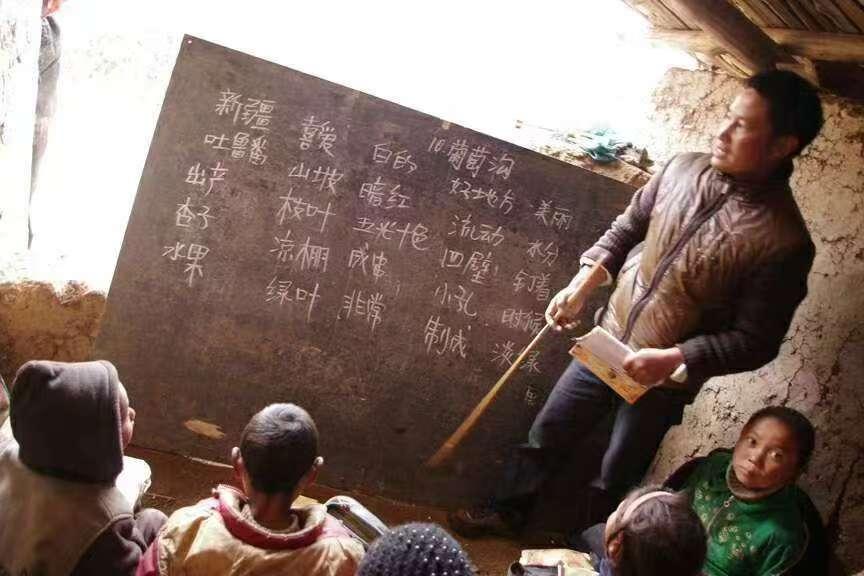 新疆
吐鲁番
出产
杏子
水果
喜爱
山坡
枝叶
凉棚
绿叶
白的
暗红
五光十色
成串
非常
10 葡萄沟
好地方
流动
四壁
小孔
制成
美丽
水分
钉着
时候
淡